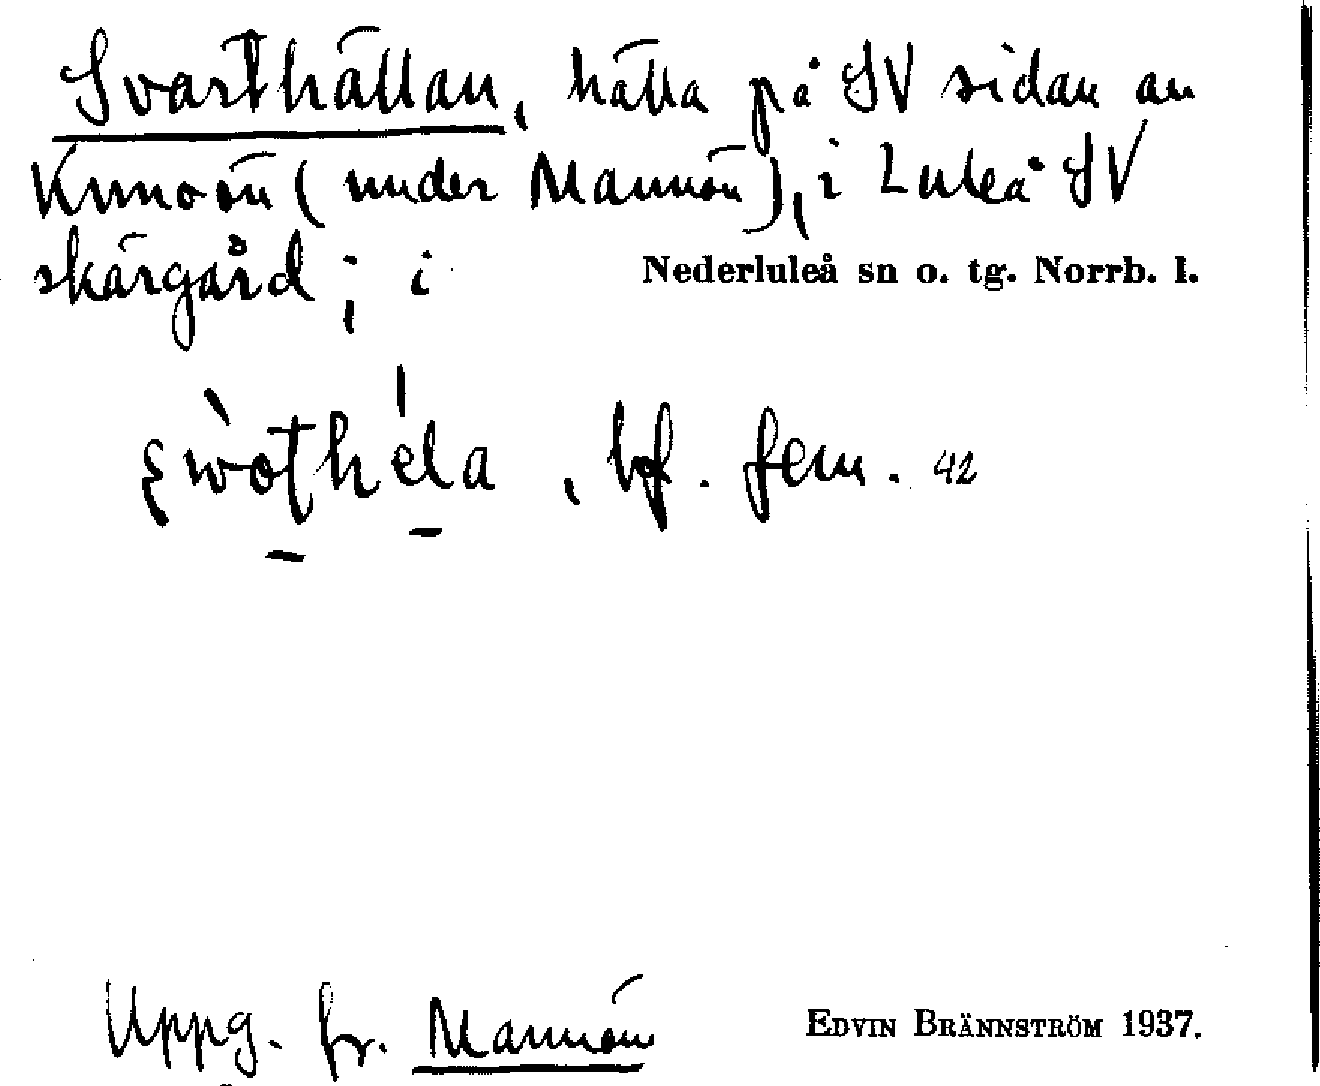 Svarthällan, hälla på SV sidan av
Kunoön (under Mannön), i Luleå SV
skärgård; i
Nederluleå sn o. tg. Norrb. l.
, bf. fem. 42
Uppg. fr. Mannön
EDVIN BRÄNNSTRÖM 1937.